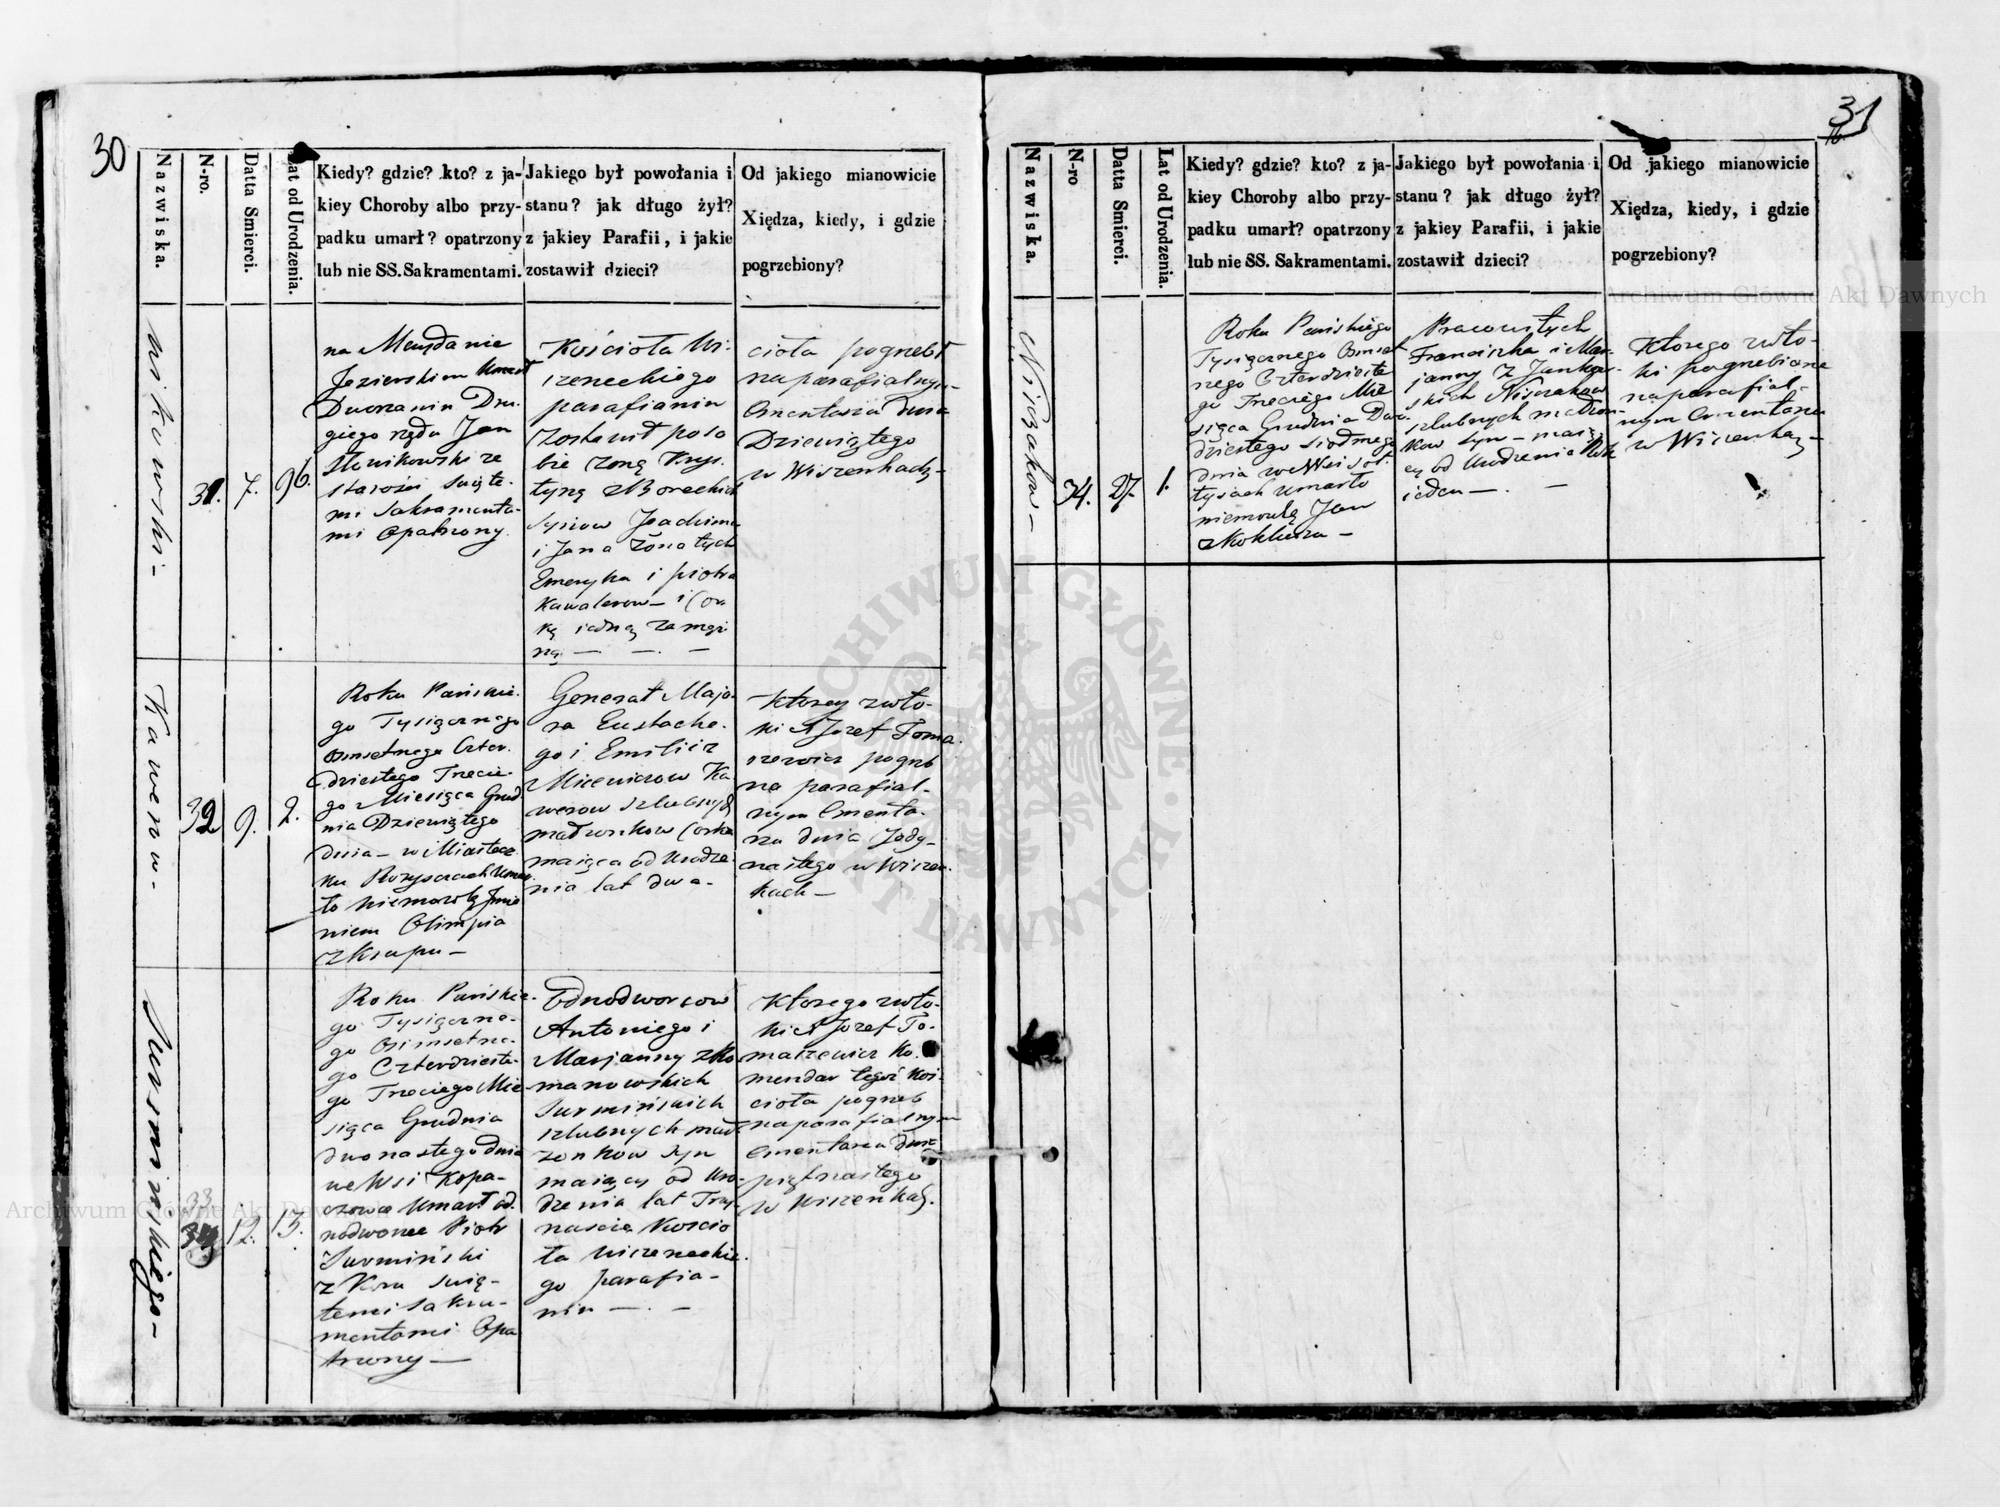 30
Nazwiska.
N-ro.
Datta Smierci.
Lat od Urodzenia.
Kiedy? gdzie? kto? z ja-
kiey Choroby albo przy-
padku umarł? opatrzony
lub nie SS. Sakramentami.
Jakiego był powołania i
stanu? jak długo żył?
z jakiey Parafii, i jakie
zostawił dzieci?
Od jakiego mianowicie
Xiędza, kiedy, i gdzie
pogrzebiony?
31.
7.
96.
na
Jezierskim Umarł
Dworzanin Dru-
giego rzędu Jan
ze
starości Święte-
mi Sakramenta-
mi Opatrzony.
Kościoła Wi-
szeneckiego
parafianin
Zostawił poso
bie żonę Krys-
tynę z Boreckich
Synow Joachima
i Jana Żonatych
Emeryka i piotra
Kawalerow – i Cor
kę iedną zamęż
ną –
cioła pogrzebł
na parafialnym
Cmentarzu dnia
Dziewiątego
w Wiszenkach –
Kawerow –
32
9.
2.
Roku Pańskie-
go Tysiącznego
Osmsetnego Czter-
dziestego Trzecie-
go Miesiąca Grud-
nia Dziewiątego
dnia – w Miastecz
ku Rożyszczach Umar-
ło Niemowlę Imie
niem Olimpia
z Krupu –
Generał Majo-
ra Eustache-
go i Emilii z
Micewiczow Ka
werow szlubnych
małżonkow Corka
maiąca od Urodze-
nia lat dwa –
Ktorey zwło-
ki X Jozef Toma
szewicz pogrzeb
na parafial-
nym Cmenta-
rzu dnia Jedy-
nastego w Wiszen-
kach –
Surminskiego –
33
12.
13.
Roku Pańskie-
go Tysiączne-
go Osmsetne-
go Czterdzieste-
go Trzeciego Mie-
siąca Grudnia
dwonastego dnia
we Wsi Kopa-
czowce Umarł od-
nodworzec Piotr
Surmiński
z Kru Swię-
temi Sakra-
mentami Opa
trzony –
Odnodworcow
Antoniego i
Marjanny z Ro
manowskich
Surmińskich
szlubnych mał-
żonkow Syn
maiący od Uro-
dzenia lat Trzy-
naście Koscio
ła Wiszeneckie-
go parafia-
nin –
Ktorego zwło-
ki X Jozef To-
maszewicz Ko-
mendarz tegoż Koś-
cioła pogrzeb
na parafialnym
Cmentarzu dnia
piętnastego
w Wiszenkach.
31
Nazwiska.
N-ro
Datta Smierci.
Lat od Urodzenia.
Kiedy? gdzie? kto? z ja-
kiey Choroby albo przy-
padku umarł? opatrzony
lub nie SS. Sakramentami.
Jakiego był powołania i
stanu? jak długo żył?
z jakiey Parafii, i jakie
zostawił dzieci?
Od jakiego mianowicie
Xiędza, kiedy, i gdzie
pogrzebiony?
34.
27.
1.
Roku Pańskiego
Tysiącznego Osmset
nego Czterdzieste
go Trzeciego Mie
siąca Grudnia Dwu-
dziestego siodmego
dnia we Wsi Soł-
tysach Umarło
niemowlę Jan
z Kokluszu –
Pracowitych
Franciszka i Mar-
janny z Jankow-
skich
szlubnych małżon-
kow syn – maią-
cy od Urodzenia Rok
ieden –
Ktorego zwło-
ki pogrzebione
na parafial-
nym Cmentarzu
w Wiszenkach –
Archiwum Główne Akt Dawnych
Archiwum Główne Akt Dawnych
ARCHIWUM GŁÓWNE AKT DAWNYCH